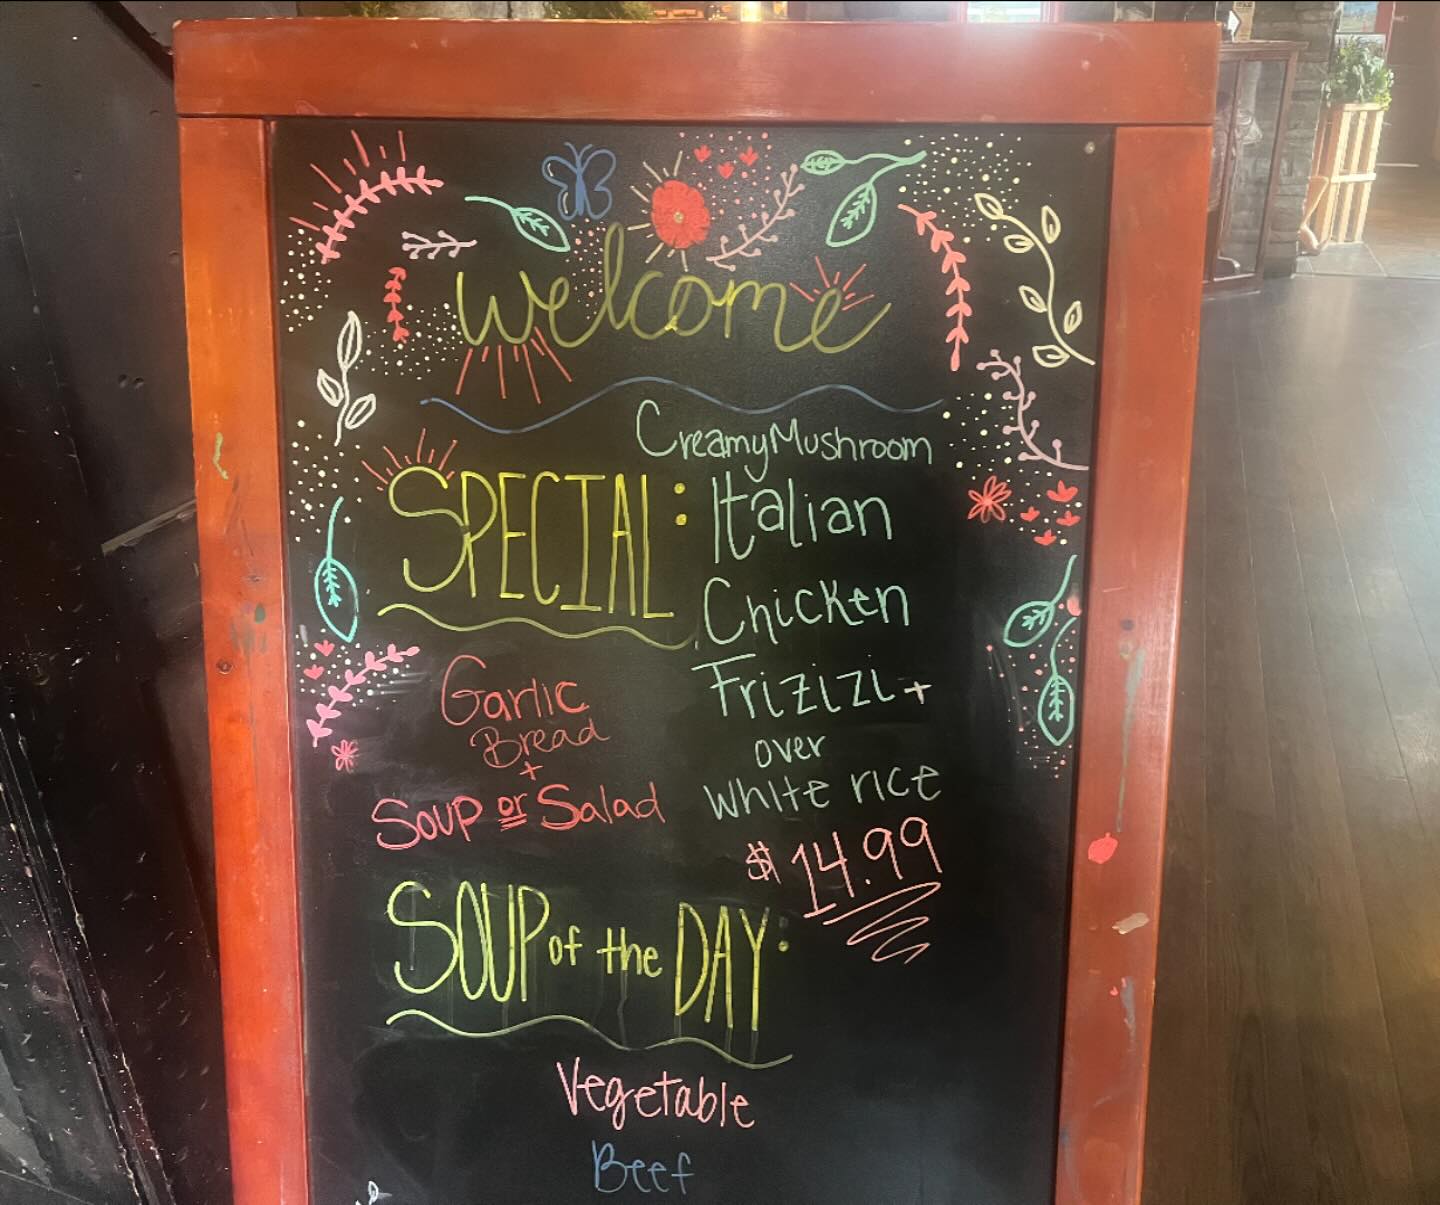 welcome
CreamyMushroom
SPECIAL: Italian
Chicken
Frizizi +
over
white rice
$14.99
Garlic
Bread
+
Soup or Salad
SOUP of the DAY:
Vegetable
Beef